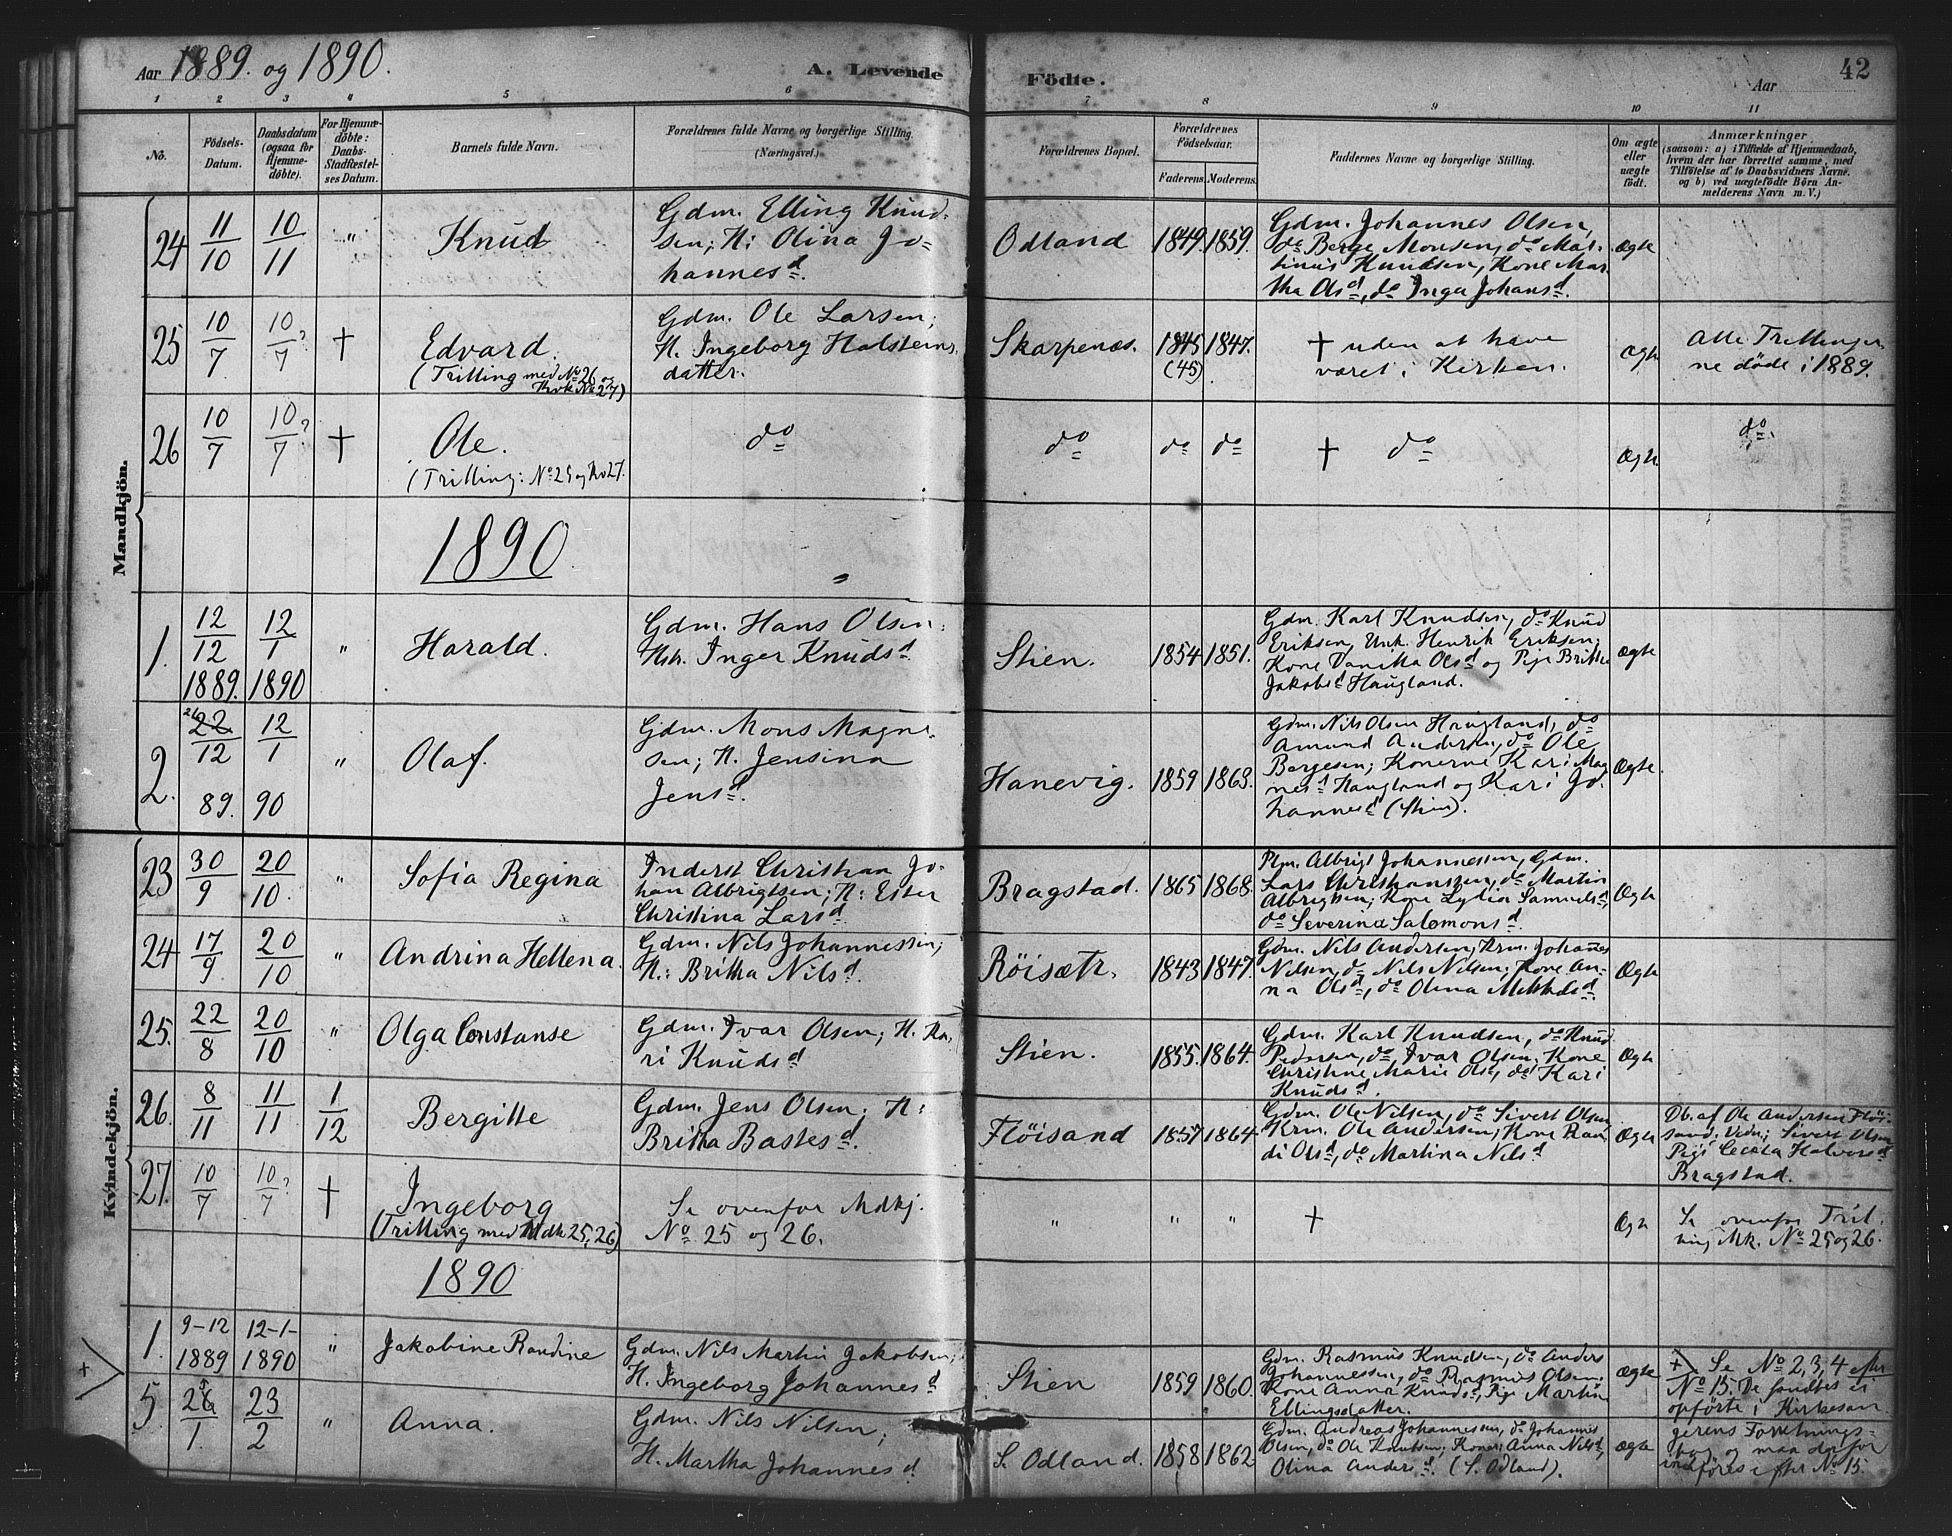 Aar 1889. og 1890.
A. Levende Födte.
Aar
42
1 2 3 4 5 6 7 8 9 10 11
No.
Födsels-Datum.
Daabsdatum (ogsaa for Hjemmedöbte).
For Hjemmedöbte: Daabs-Stadfæstelses Datum.
Barnets fulde Navn.
Forældrenes fulde Navne og borgerlige Stilling. (Næringsvei.)
Forældrenes Bopæl.
Forældrenes Födselsaar.
Faderens. Moderens.
Faddernes Navne og borgerlige Stilling.
Om ægte eller uægte födt.
Anmærkninger
(saasom: a) i Tilfælde af Hjemmedaab,
hvem der har forrettet samme, med
Tilföielse af to Daabsvidners Navne.
og b) ved uægtefödte Börn Anmelderens Navn m. V.)
Mandkjön.
24 11/10 10/11 " Knud
Gdm. Elling Knud-
sen; H: Olina Jo-
hannesd.
Odland 1849. 1859.
Gdm. Johannes Olsen,
do Berge Monsen, do Mar-
tinus Knudsen, Kone Mar-
tha Olsd, do Inga Johansd.
Ægte
25 10/7 10/7? † Edvard.
(Trilling med No 26 og
Kvk No 27)
Gdm. Ole Larsen;
H. Ingeborg Halsteins
datter.
Skarpenæs. 1845 (45) 1847.
† uden at have
været i Kirken.
Ægte
Alle Trillinger-
ne døde i 1889.
26 10/7 10/7? † Ole.
(Trilling: No 25 og Kv 27.
do do do do † do Ægte do.
1890
1. 12/12 1889. 12/1 1890 " Harald.
Gdm. Hans Olsen;
Hstr. Inger Knudsd
Stien. 1854 1851.
Gdm. Karl Knudsen, do Knud
Eriksen, Unk. Henrik Eriksen;
Kone Olsd og Pige Britha
Jakobsd Haugland.
Ægte
2. 22/12 89. 12/1 90 " Olaf.
Gdm. Mons Magne-
sen; H. Jensina
Jensd.
Hanevig. 1859 1863.
Gdm. Nils Olsen Haugland, do
Amund Andersen, do Ole
Bergesen; Konerne Kari Mag
nesd Haugland og Kari Jo-
hannesd (Stien).
Ægte.
Kvindekjön.
23 30/9 20/10. " Sofia Regina
Inderst Christian Jo-
han Albrigtsen; H: Ester
Christina Larsd
Bragstad. 1865 1868.
Plm. Albrigt Johannessen, Gdm.
Lars Christiansen, do Martin
Albrigtsen; Kone Lydia Samuelsd,
do Severina Salomonsd.
Ægte
24 17/9. 20/10 " Andrina Hellena.
Gdm. Nils Johannessen;
H.: Britha Nilsd.
Röisætr. 1843 1847.
Gdm. Nils Andersen, Krm. Johannes
Nilsen, do Nils Nilsen; Kone An-
na Olsd, do Olina
Ægte
25. 22/8 20/10 " Olga Constanse
Gdm. Ivar Olsen; H. Ka-
ri Knudsd
Stien. 1855. 1864.
Gdm. Karl Knudsen, do Knud
Pedersen, do Ivar Olsen; Kone
Christine Marie Olsd, do Kari
Knudsd.
Ægte
26. 8/11 11/11. 1/12 Bergitte
Gdm. Jens Olsen; H:
Britha Bastesd.
Flöisand 1857 1864.
Gdm. Ole Nilsen, do Sivert Olsen
Krm. Ole Andersen; Kone Ran
di Olsd, do Martina Nilsd
Ægte
Db. af Ole Andersen Flöi-
sand; Vidn; Sivert Olsen
Pige Cecilia Halvorsd
Bragstad.
27. 10/7 10/7? † Ingeborg
(Trilling med Mdk 25, 26)
Se ovenfor Mdkj.
No 25 og 26.
" " " † Ægte
Se ovenfor Tril-
ling Mk. No 25 og 26.
1890
1. 9-12 1889 12-1- 1890 " Jakobine Randine
Gdm. Nils Martin Jakobsen;
H. Ingeborg Johannesd
Stien 1859 1860.
Gdm. Rasmus Knudsen, do Anders
Johannessen, do Rasmus Olsen;
Kone Anna Knudsd, Pige Martin
Ellingsdatter.
Ægte
+ Se No 2, 3, 4 efter
No 15. De fandtes ei
opførte i Kirkesan-
gerens Forretnings-
bog og maa derfor
indføres efter No 15.
+
5. 26/1. 23/2 " Anna.
Gdm. Nils Nilsen;
H. Martha Johannesd.
S. Odland. 1858 1862
Gdm. Andreas Johannessen, do Johannes
Olsen, do Ole Knudsen; Koner: Anna Nilsd,
Olina Andersd. (S. Odland).
Ægte